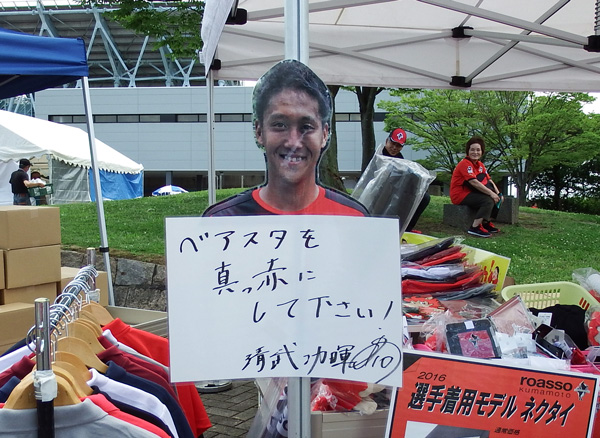 ベアスタを
真っ赤に
して下さい!
清武功暉
10
2016
roasso
KUMAMOTO
選手着用モデル ネクタイ
通常価格